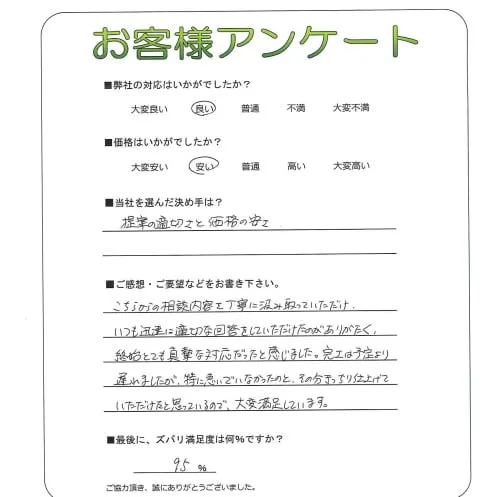 お客様アンケート
■弊社の対応はいかがでしたか？
大変良い 良い 普通 不満 大変不満
■価格はいかがでしたか？
大変安い 安い 普通 高い 大変高い
■当社を選んだ決め手は？
提案の適切さと価格の安さ
■ご感想・ご要望などをお書き下さい。
こちらからの相談内容を丁寧に汲み取っていただけ、
いつも迅速に適切な回答をしていただけたのがありがたく、
終始とても真摯な対応だったと感じました。完工は予定より
遅れましたが、特に急いでいなかったのと、その分きっちり仕上げて
いただけたと思っているので、大変満足しています。
■最後に、ズバリ満足度は何％ですか？
95 ％
ご協力頂き、誠にありがとうございました。